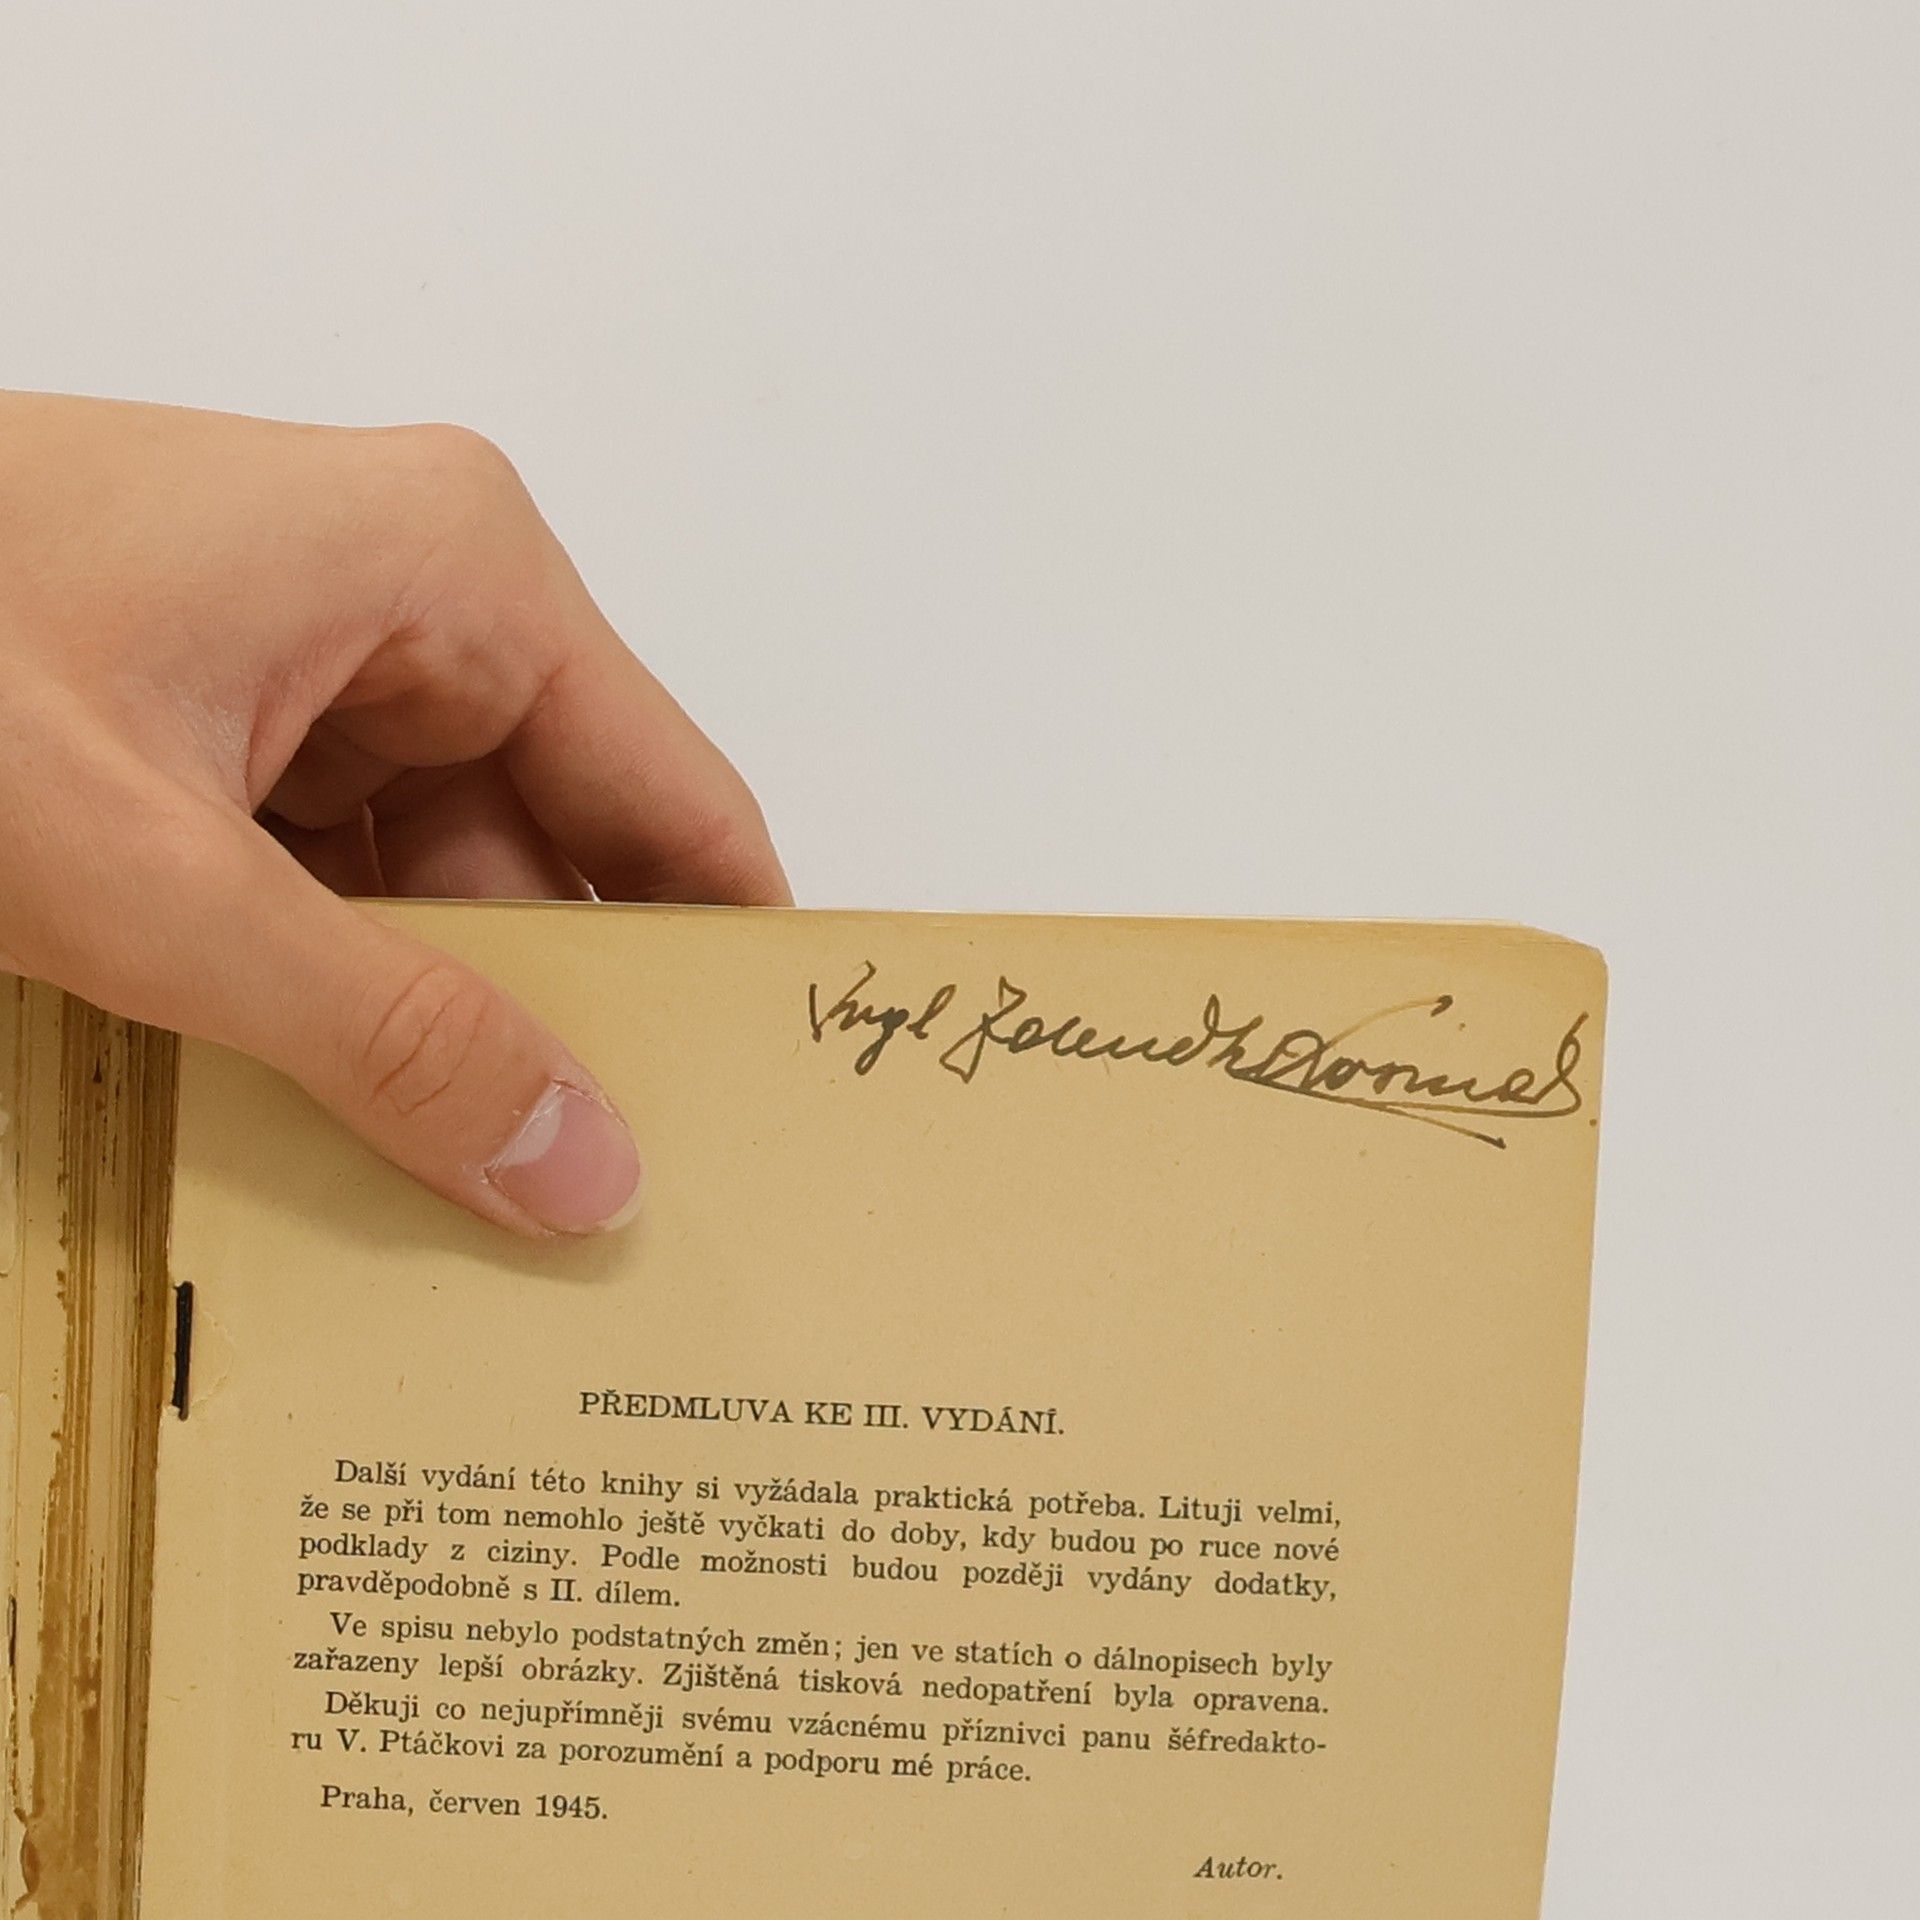 PŘEDMLUVA KE III. VYDÁNÍ.
Další vydání této knihy si vyžádala praktická potřeba. Lituji velmi,
že se při tom nemohlo ještě vyčkati do doby, kdy budou po ruce nové
podklady z ciziny. Podle možnosti budou později vydány dodatky,
pravděpodobně s II. dílem.
Ve spisu nebylo podstatných změn; jen ve statích o dálnopisech byly
zařazeny lepší obrázky. Zjištěná tisková nedopatření byla opravena.
Děkuji co nejupřímněji svému vzácnému příznivci panu šéfredakto-
ru V. Ptáčkovi za porozumění a podporu mé práce.
Praha, červen 1945.
Autor.